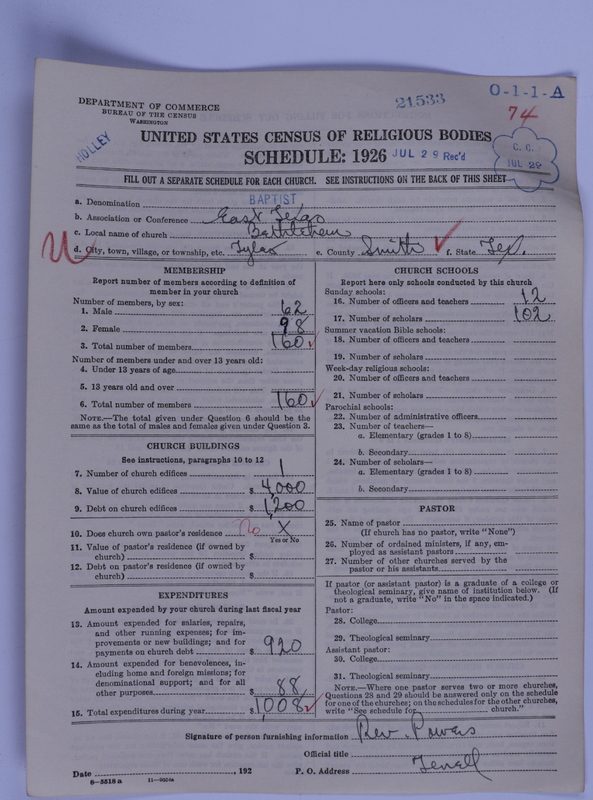 21533
O-1-1-A
74
DEPARTMENT OF COMMERCE
BUREAU OF THE CENSUS
WASHINGTON
HOLLEY
UNITED STATES CENSUS OF RELIGIOUS BODIES
SCHEDULE: 1926 JUL 29 Rec'd
C. C.
JUL 29
FILL OUT A SEPARATE SCHEDULE FOR EACH CHURCH. SEE INSTRUCTIONS ON THE BACK OF THIS SHEET
a. Denomination BAPTIST
b. Association or Conference East Texas
c. Local name of church Bethlehem
d. City, town, village, or township, etc. Tyler e. County Smith f. State Tex.
MEMBERSHIP
Report number of members according to definition of
member in your church
Number of members, by sex:
1. Male 62
2. Female 98
3. Total number of members 160
Number of members under and over 13 years old:
4. Under 13 years of age
5. 13 years old and over
6. Total number of members 160
NOTE.—The total given under Question 6 should be the
same as the total of males and females given under Question 3.
CHURCH BUILDINGS
See instructions, paragraphs 10 to 12
7. Number of church edifices 1
8. Value of church edifices $ 4,000
9. Debt on church edifices $ 1,200
10. Does church own pastor's residence? no X
Yes or No
11. Value of pastor's residence (if owned by
church) $
12. Debt on pastor's residence (if owned by
church) $
EXPENDITURES
Amount expended by your church during last fiscal year
13. Amount expended for salaries, repairs,
and other running expenses; for im-
provements or new buildings; and for
payments on church debt $ 920
14. Amount expended for benevolences, in-
cluding home and foreign missions; for
denominational support; and for all
other purposes $ 88
15. Total expenditures during year $ 1,008
CHURCH SCHOOLS
Report here only schools conducted by this church
Sunday schools:
16. Number of officers and teachers 12
17. Number of scholars 102
Summer vacation Bible schools:
18. Number of officers and teachers
19. Number of scholars
Week-day religious schools:
20. Number of officers and teachers
21. Number of scholars
Parochial schools:
22. Number of administrative officers
23. Number of teachers—
a. Elementary (grades 1 to 8)
b. Secondary
24. Number of scholars—
a. Elementary (grades 1 to 8)
b. Secondary
PASTOR
25. Name of pastor
(If church has no pastor, write "None")
26. Number of ordained ministers, if any, em-
ployed as assistant pastors
27. Number of other churches served by the
pastor or his assistants
If pastor (or assistant pastor) is a graduate of a college or
theological seminary, give name of institution below. (If
not a graduate, write "No" in the space indicated.)
Pastor:
28. College
29. Theological seminary
Assistant pastor:
30. College
31. Theological seminary
NOTE.—Where one pastor serves two or more churches,
Questions 28 and 29 should be answered only on the schedule
for one of the churches; on the schedules for the other churches,
write "See schedule for church."
Signature of person furnishing information Rev. Powers
Official title
Date , 192 P. O. Address Terrell
8-5518 a